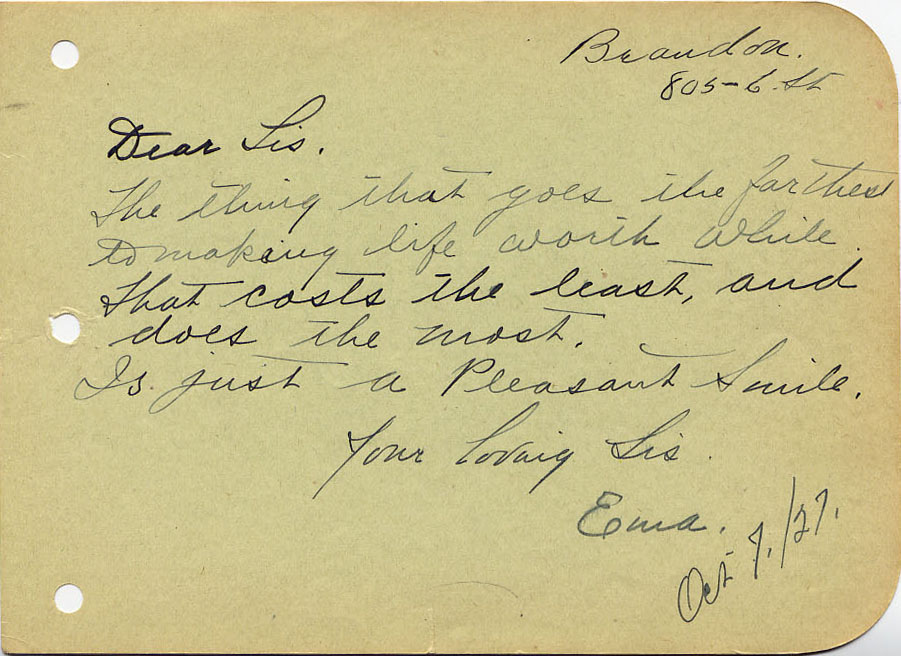 Brandon.
805-6. St
Dear Sis.
The thing that goes the farthest
to making life worth while.
That costs the least, and
does the most.
Is just a Pleasant Smile.
Your loving Sis.
Ema.
Oct 7./27.